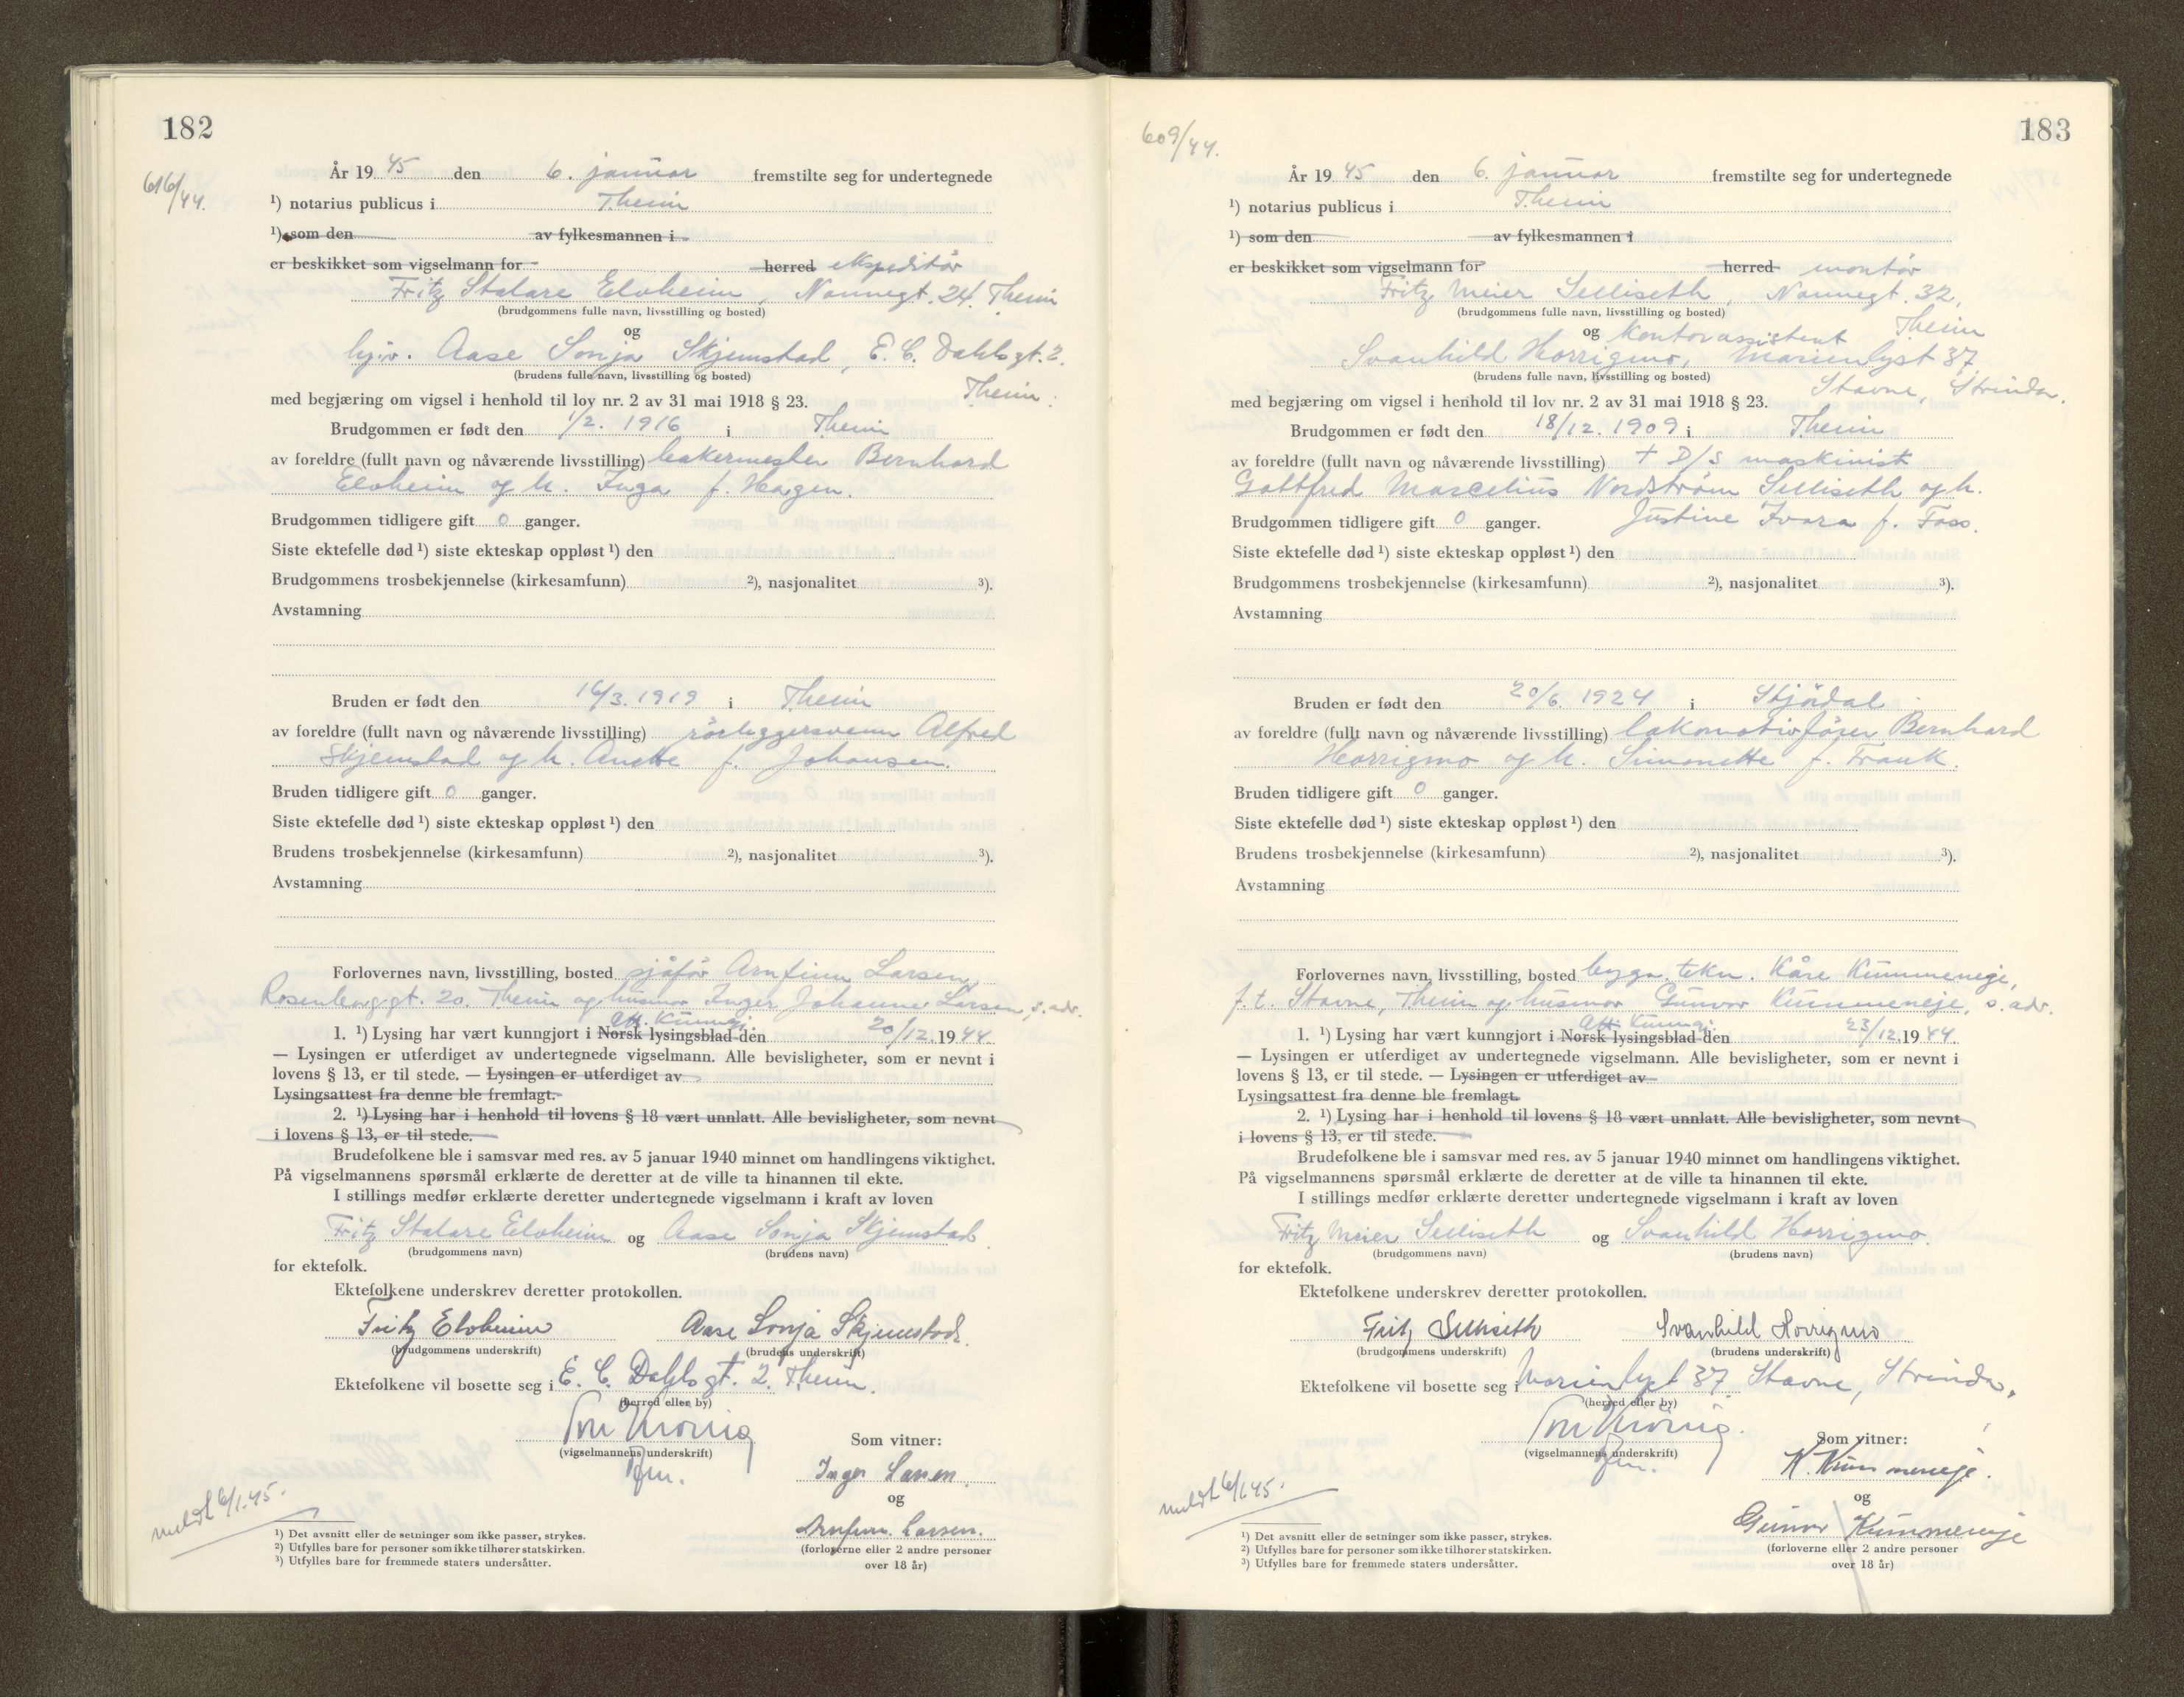 182
616/44.
År 1945 den 6. januar fremstilte seg for undertegnede
¹) notarius publicus i Theim
¹) som den av fylkesmannen i
er beskikket som vigselmann for herred ekspeditør
Fritz Stalare Elvheim, Nonnegt. 24. Theim
(brudgommens fulle navn, livsstilling og bosted)
og
hjv. Aase Sonja Skjemstad, E. C. Dahls gt. 2.
(brudens fulle navn, livsstilling og bosted)
Theim.
med begjæring om vigsel i henhold til lov nr. 2 av 31 mai 1918 § 23.
Brudgommen er født den 1/2. 1916 i Theim
av foreldre (fullt navn og nåværende livsstilling) bakermester Bernhard
Elvheim og h. Inga f. Hagen.
Brudgommen tidligere gift 0 ganger.
Siste ektefelle død ¹) siste ekteskap oppløst ¹) den
Brudgommens trosbekjennelse (kirkesamfunn) ²), nasjonalitet ³).
Avstamning
Bruden er født den 16/3. 1919 i Theim
av foreldre (fullt navn og nåværende livsstilling) rørleggersvenn Alfred
Skjemstad og h. Anette f. Johansen.
Bruden tidligere gift 0 ganger.
Siste ektefelle død ¹) siste ekteskap oppløst ¹) den
Brudens trosbekjennelse (kirkesamfunn) ²), nasjonalitet ³).
Avstamning
Forlovernes navn, livsstilling, bosted sjåfør Arnfinn Larsen,
Rosenborggt. 20. Theim og husmor Inger Johanne Larsen, s. adr.
Off. Kunngj.
1. ¹) Lysing har vært kunngjort i Norsk lysingsblad den 20/12. 1944.
— Lysingen er utferdiget av undertegnede vigselmann. Alle bevisligheter, som er nevnt i
lovens § 13, er til stede. — Lysingen er utferdiget av
Lysingsattest fra denne ble fremlagt.
2. ¹) Lysing har i henhold til lovens § 18 vært unnlatt. Alle bevisligheter, som nevnt
i lovens § 13, er til stede.
Brudefolkene ble i samsvar med res. av 5 januar 1940 minnet om handlingens viktighet.
På vigselmannens spørsmål erklærte de deretter at de ville ta hinannen til ekte.
I stillings medfør erklærte deretter undertegnede vigselmann i kraft av loven
Fritz Stalare Elvheim og Aase Sonja Skjemstad
(brudgommens navn) (brudens navn)
for ektefolk.
Ektefolkene underskrev deretter protokollen.
Fritz Elvheim Aase Sonja Skjemstad.
(brudgommens underskrift) (brudens underskrift)
Ektefolkene vil bosette seg i E. C. Dahls gt. 2. Theim.
(herred eller by)
(vigselmannens underskrift)
Som vitner:
Inger Larsen
og
Arnfinn Larsen.
(forloverne eller 2 andre personer
over 18 år)
meldt 6/1.45.
¹) Det avsnitt eller de setninger som ikke passer, strykes.
²) Utfylles bare for personer som ikke tilhører statskirken.
³) Utfylles bare for fremmede staters undersåtter.
183
609/44.
År 1945 den 6. januar fremstilte seg for undertegnede
¹) notarius publicus i Theim
¹) som den av fylkesmannen i
er beskikket som vigselmann for herred montør
Fritz Meier Selliseth, Nonnegt. 32,
(brudgommens fulle navn, livsstilling og bosted)
Theim
og kontorassistent
Svanhild Horrigmo, Marienlyst 37
(brudens fulle navn, livsstilling og bosted)
Stavne, Strinda.
med begjæring om vigsel i henhold til lov nr. 2 av 31 mai 1918 § 23.
Brudgommen er født den 18/12. 1909 i Theim
av foreldre (fullt navn og nåværende livsstilling) + D/S maskinist
Gottfred Marcelius Nordstrøm Selliseth og h.
Justine Ivara f. Foss.
Brudgommen tidligere gift 0 ganger.
Siste ektefelle død ¹) siste ekteskap oppløst ¹) den
Brudgommens trosbekjennelse (kirkesamfunn) ²), nasjonalitet ³).
Avstamning
Bruden er født den 20/6. 1924 i Stjørdal
av foreldre (fullt navn og nåværende livsstilling) lokomotivfører Bernhard
Horrigmo og h. Simonette f. Frank.
Bruden tidligere gift 0 ganger.
Siste ektefelle død ¹) siste ekteskap oppløst ¹) den
Brudens trosbekjennelse (kirkesamfunn) ²), nasjonalitet ³).
Avstamning
Forlovernes navn, livsstilling, bosted bygn. tekn. Kåre Kummeneje,
f.t. Stavne, Theim og husmor Gunvor Kummeneje, s. adr.
Off. Kunngj.
1. ¹) Lysing har vært kunngjort i Norsk lysingsblad den 23/12. 1944
— Lysingen er utferdiget av undertegnede vigselmann. Alle bevisligheter, som er nevnt i
lovens § 13, er til stede. — Lysingen er utferdiget av
Lysingsattest fra denne ble fremlagt.
2. ¹) Lysing har i henhold til lovens § 18 vært unnlatt. Alle bevisligheter, som nevnt
i lovens § 13, er til stede.
Brudefolkene ble i samsvar med res. av 5 januar 1940 minnet om handlingens viktighet.
På vigselmannens spørsmål erklærte de deretter at de ville ta hinannen til ekte.
I stillings medfør erklærte deretter undertegnede vigselmann i kraft av loven
Fritz Meier Selliseth og Svanhild Horrigmo.
(brudgommens navn) (brudens navn)
for ektefolk.
Ektefolkene underskrev deretter protokollen.
Fritz Selliseth Svanhild Horrigmo
(brudgommens underskrift) (brudens underskrift)
Ektefolkene vil bosette seg i Marienlyst 37 Stavne, Strinda.
(herred eller by)
(vigselmannens underskrift)
Som vitner:
K. Kummeneje.
og
Gunvor Kummeneje
(forloverne eller 2 andre personer
over 18 år)
meldt 6/1.45.
¹) Det avsnitt eller de setninger som ikke passer, strykes.
²) Utfylles bare for personer som ikke tilhører statskirken.
³) Utfylles bare for fremmede staters undersåtter.